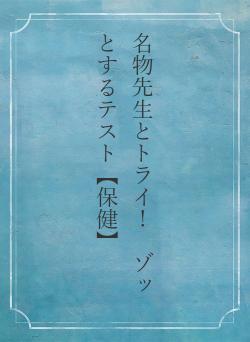 名物先生とトライ！　ゾッ
とするテスト【保健】